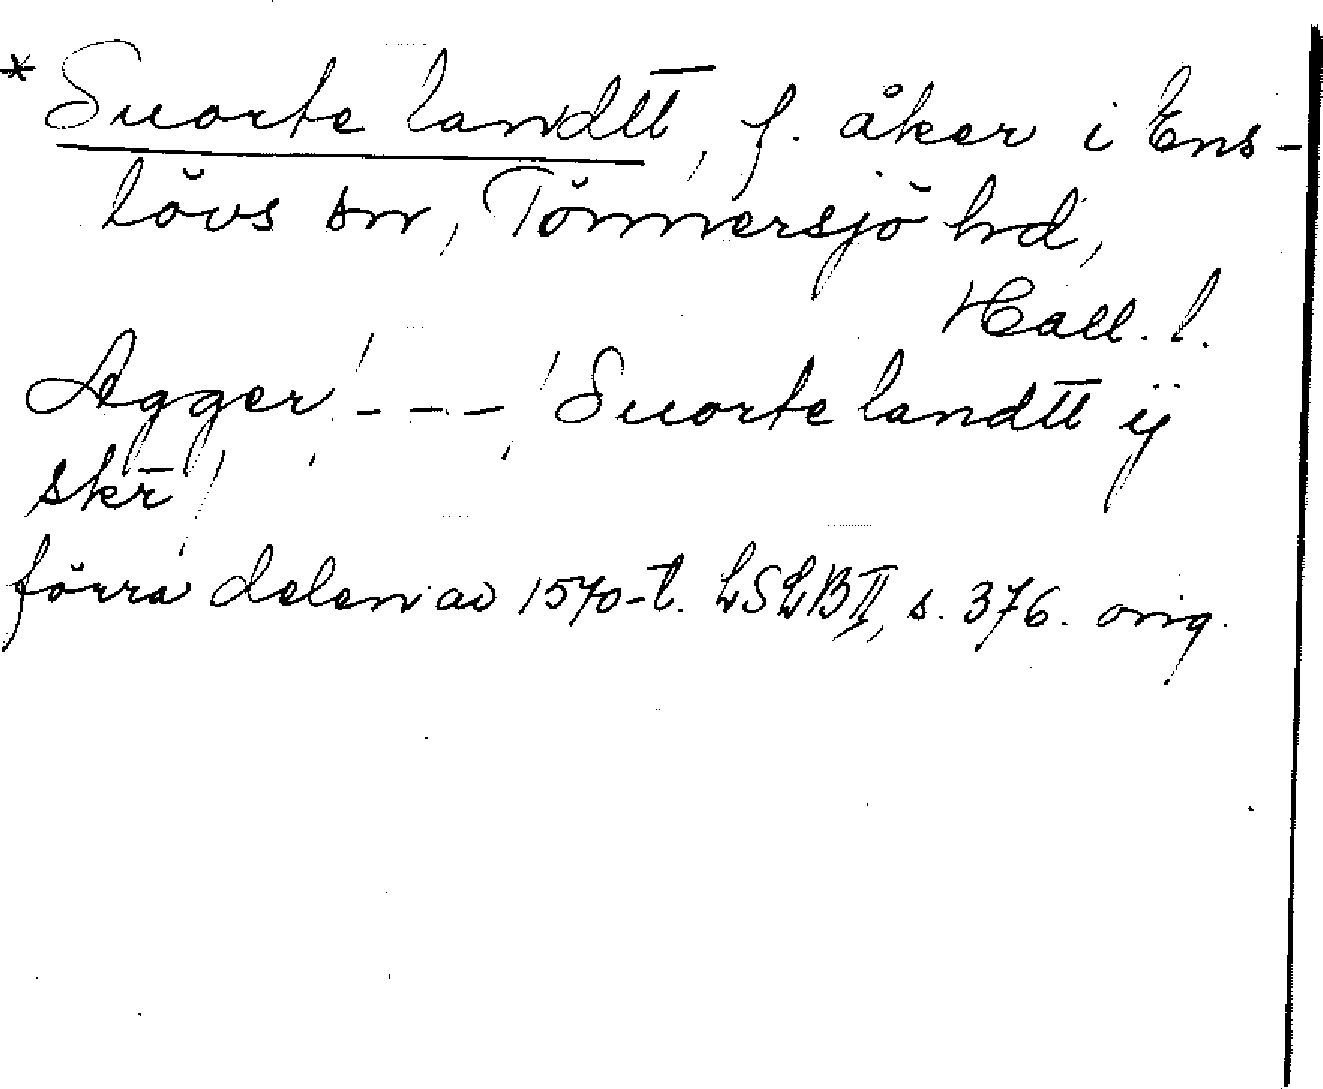 *Suorte landtt, f. åker i Ens-
lövs sn, Tönnersjö hd,
Hall. l.
Agger! - - - ! Suorte landtt ij
skr̄
förra delen av 1570-t. LSLB II, s. 376. orig.